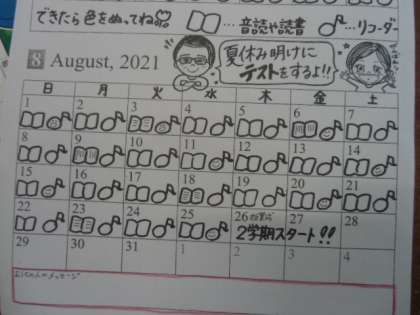 できたら色をぬってね
…音読や読書 …リコーダー
8 August, 2021
夏休み明けに
テストをするよ!!
日 月 火 水 木 金 土
1 2 3 4 5 6 7
8 9 10 11 12 13 14
15 16 17 18 19 20 21
22 23 24 25 26 27 28
2学期スタート!!
29 30 31 1 2 3 4
メッセージ